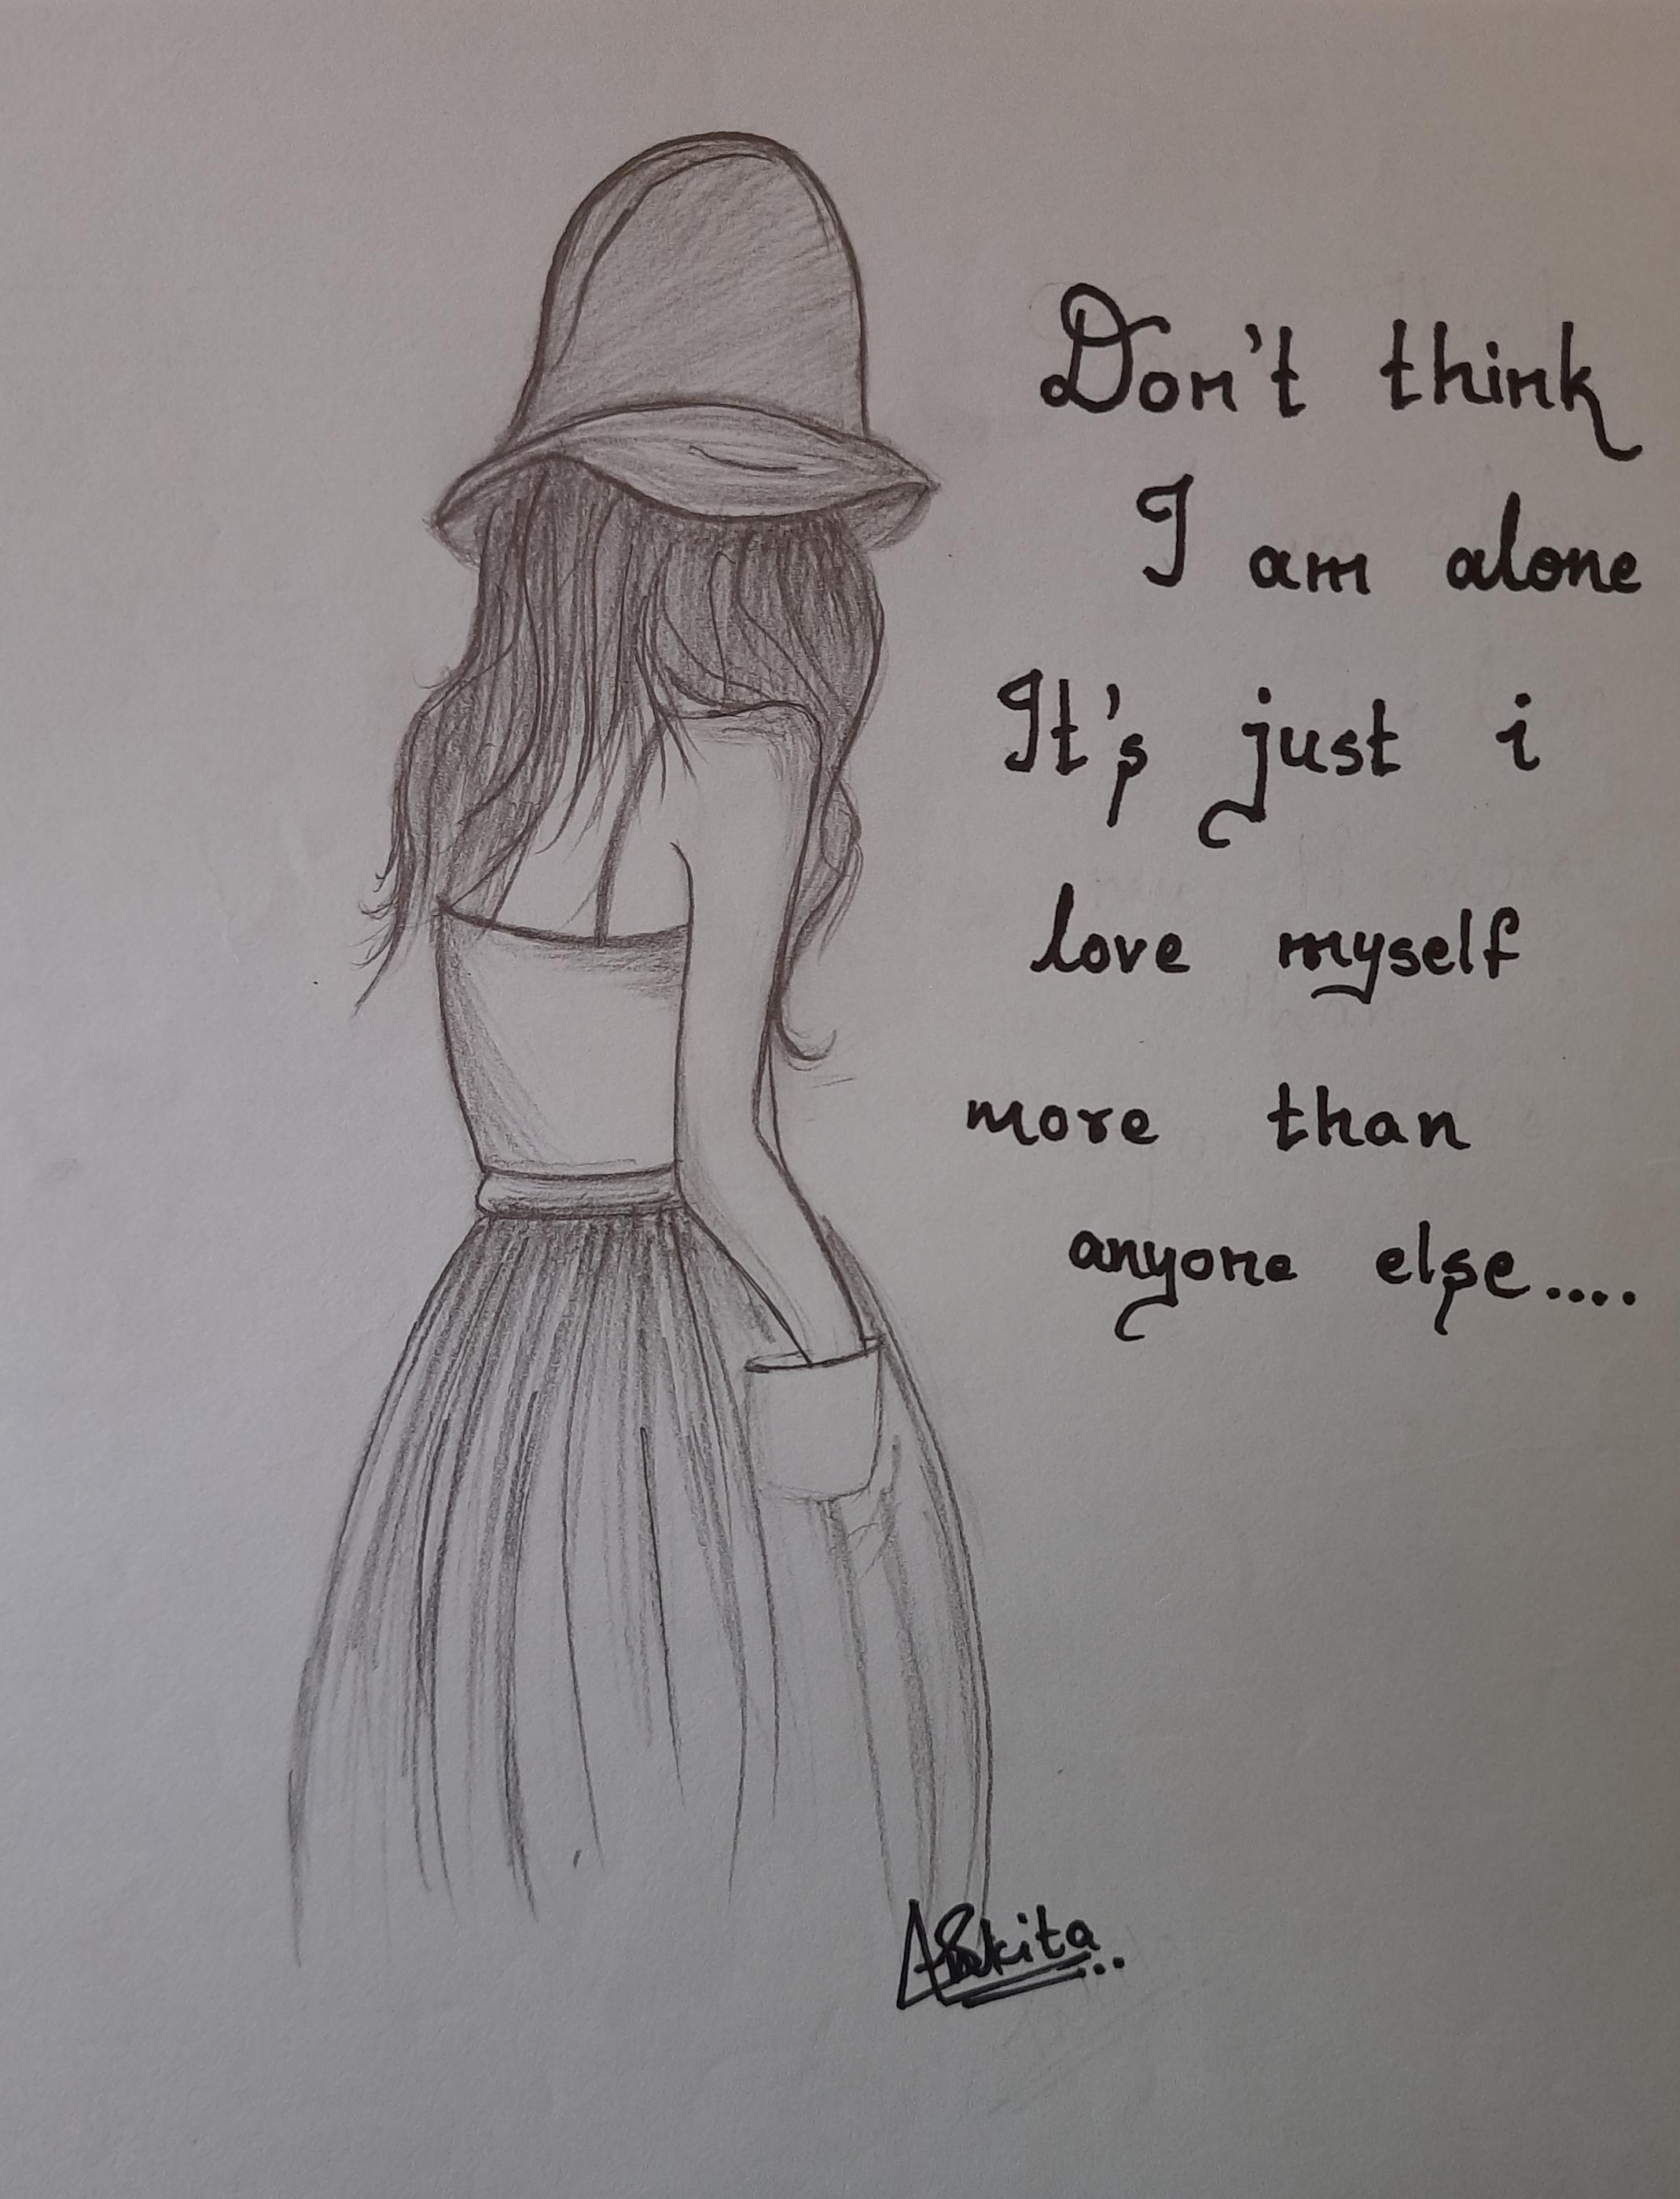 Don't think
I am alone
It's just i
love myself
more than
anyone else.....